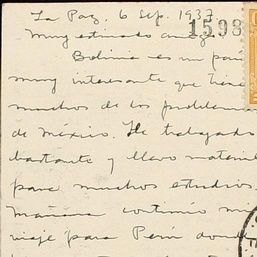 La Paz, 6 Sep. 1937
1598
Muy estimado amigo:
Bolivia es un país
muy interesante que tiene
muchos de los problemas
de México. He trabajado
bastante y llevo material
para muchos estudios.
Mañana continúo mi
viaje para Perú donde